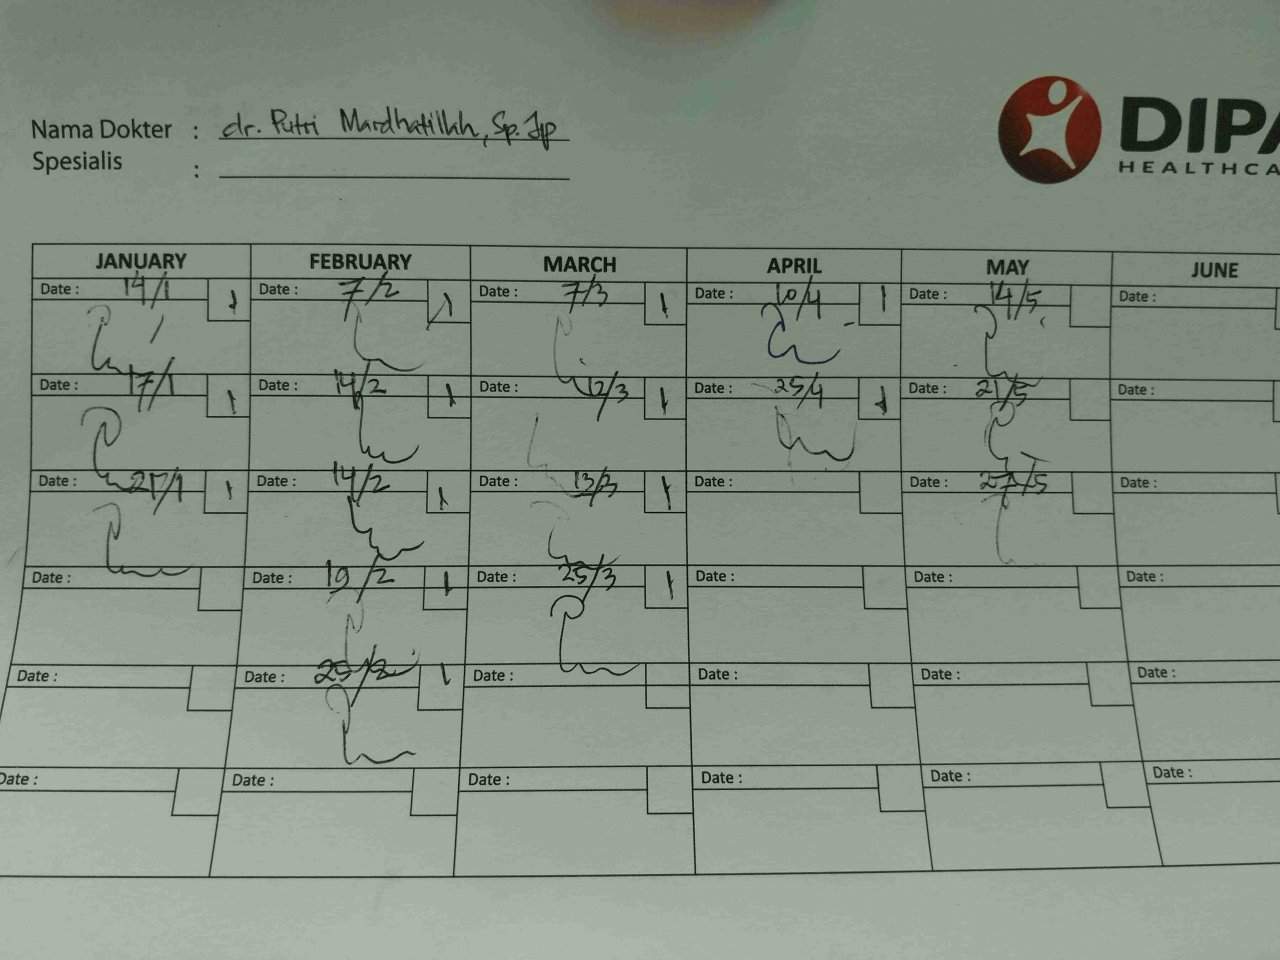 Nama Dokter : dr. Putri Mardhatillah, Sp.Jp
Spesialis :
DIPA
HEALTHCA
JANUARY FEBRUARY MARCH APRIL MAY JUNE
Date : 14/1 1 Date : 7/2 1 Date : 7/3 1 Date : 10/4 1 Date : 14/5 Date :
Date : 17/1 1 Date : 14/2 1 Date : 12/3 1 Date : 25/4 1 Date : 21/5 Date :
Date : 27/1 1 Date : 14/2 1 Date : 13/3 1 Date : Date : 27/5 Date :
Date : Date : 19/2 1 Date : 25/3 1 Date : Date : Date :
Date : Date : 25/2 1 Date : Date : Date : Date :
Date : Date : Date : Date : Date : Date :